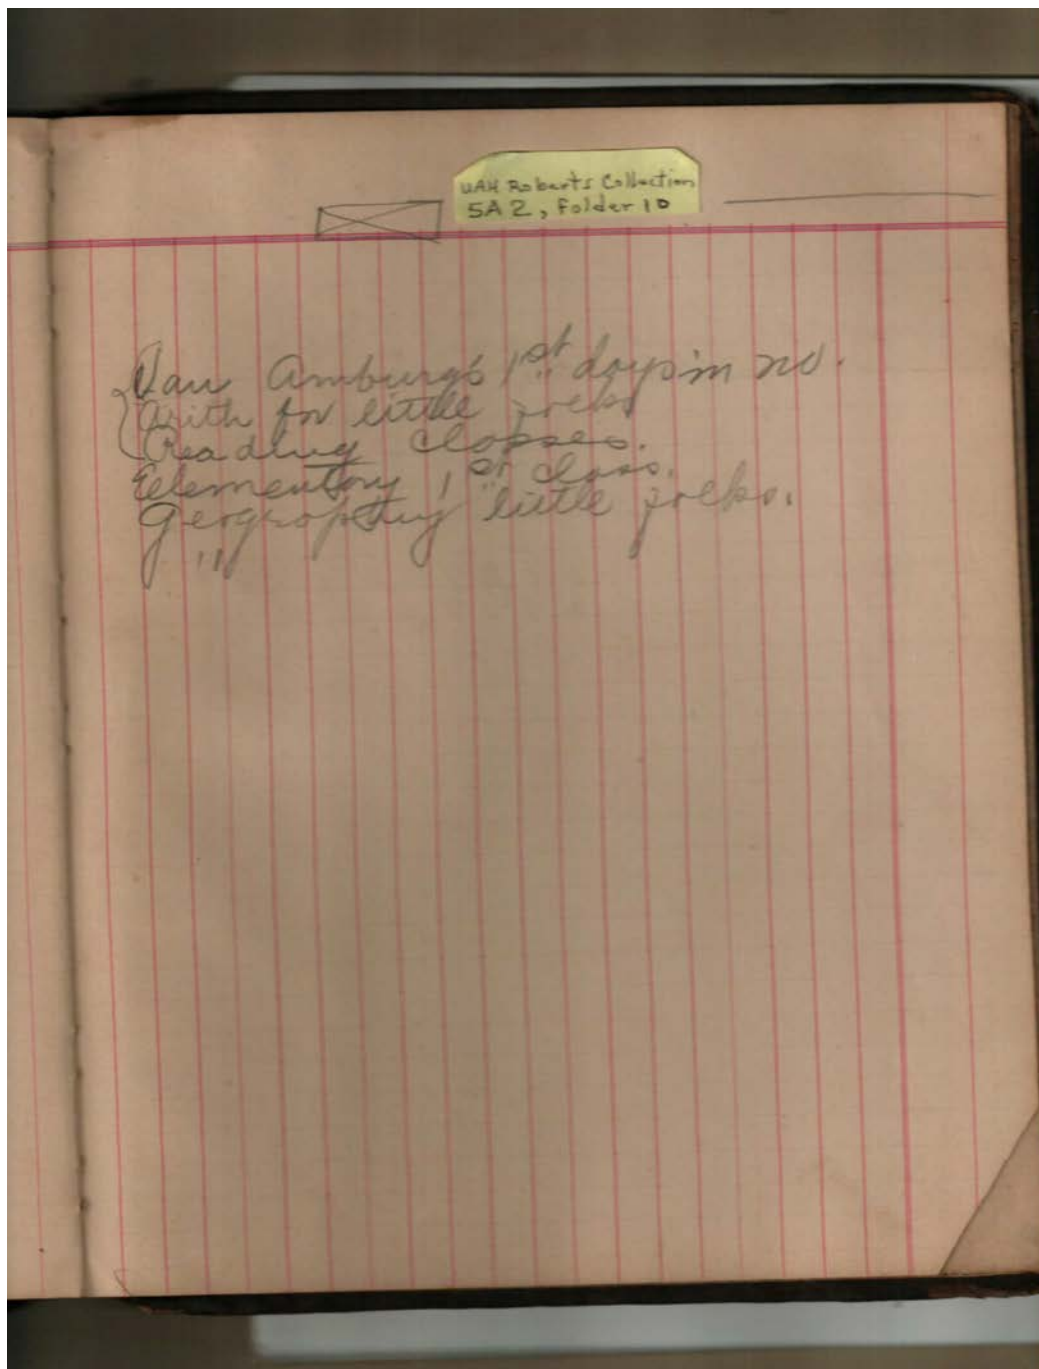 UAH Roberts Collection
5A2, Folder 10
Van Amburgs 1st days in no.
Arith for little folks
Reading classes.
Elementary 1st class.
Geography little folks.
"